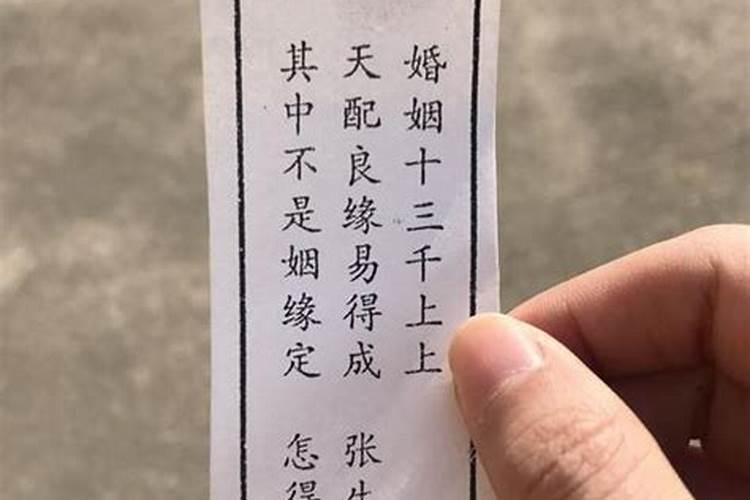 婚姻十三千上上
天配良缘易得成 张生
其中不是姻缘定 怎得